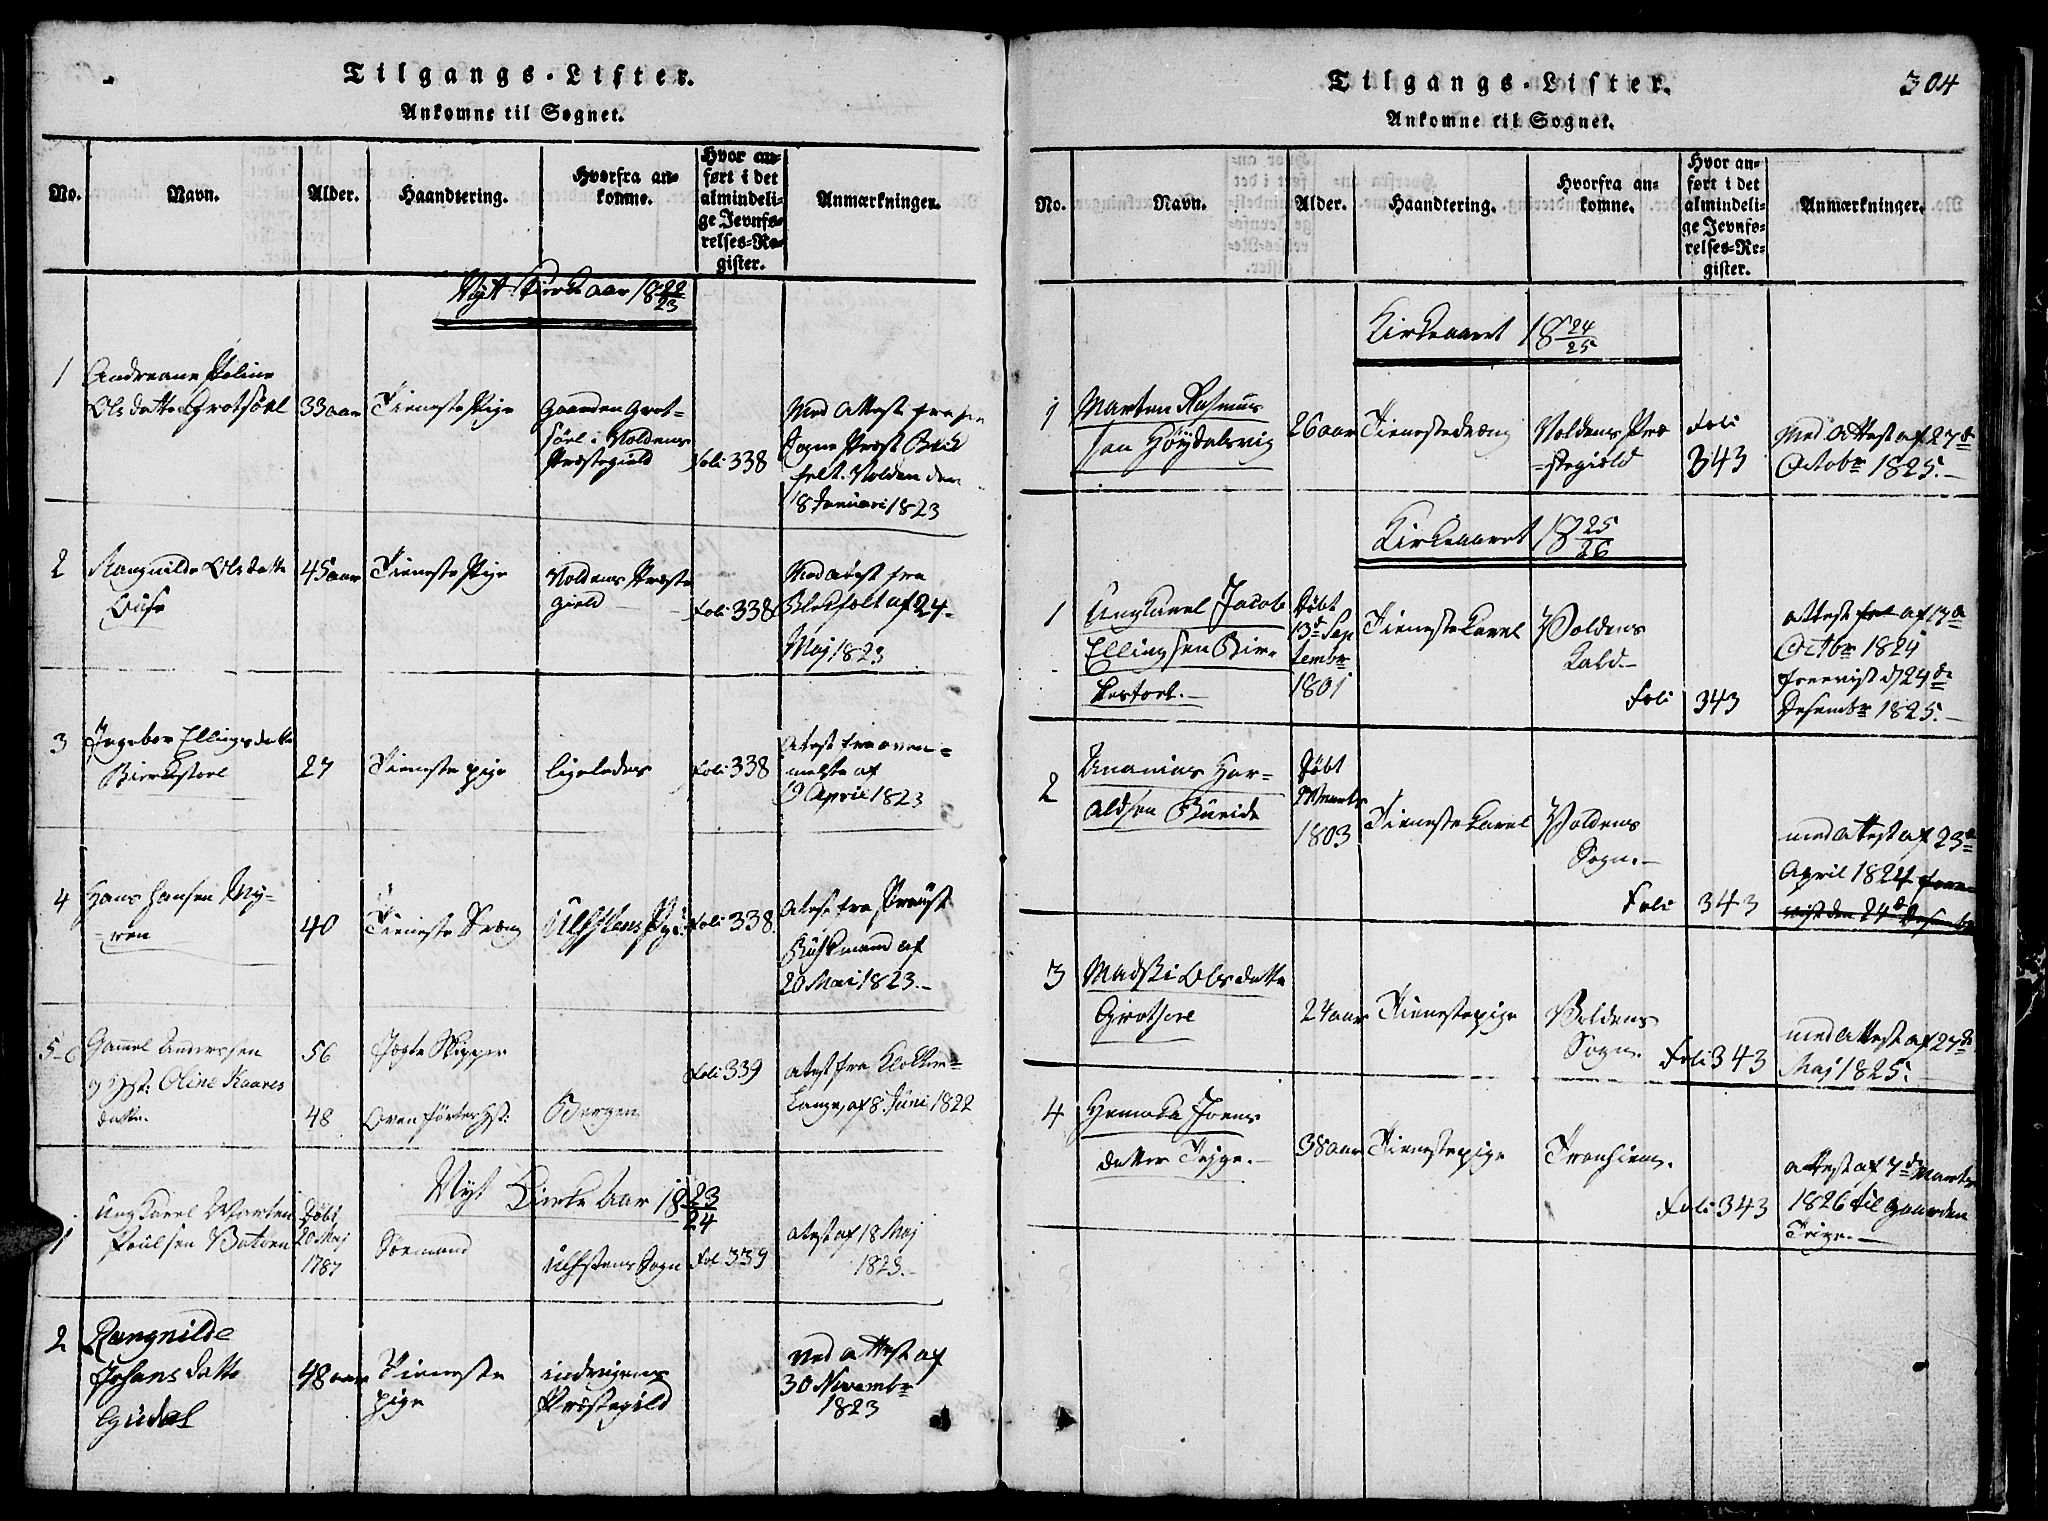 Tilgangs-Lister.
Ankomne til Sognet.
No. Navn. Alder. Haandtering. Hvorfra an-
komne. Hvor an-
ført i det
almindeli-
ge Jevnfø-
relses-Re-
gister. Anmærkninger.
Nyt Kirke aar 18 22/23
1 Andreane Poline
Olsdatter Grotsöel 33 aar Tieneste Pige Gaarden Grot-
söel i Voldens
Præstegield Foli 338 Med Attest fra
Sogne Præst
Volden den
18 Januari 1823
2 Rangnilde Olsdatter 45 aar Tieneste Pige Voldens Præste
gield Foli 338 Med Atest fra
af 24
Maj 1823
3 Ingebor Ellingsdatter
Birkestoel 27 Tieneste pige ligeledes Foli 338 Atest fra oven-
meldte af
19 April 1823
4 Hans Hansen My-
-ren 40 Tieneste Dræng Ulfstens Pgl: Foli 338 Atest fra Provst
Buschmand af
20 Mai 1823.-
5-6 Gammel Anderssen 56 Jægte Skipper
Hst: Oline Knaves
datter 48 Ovenførtes Hst: Bergen Foli 339 Atest fra Klokker
Lange, af 8 Juni 1822
Nyt Kirke Aar 18 23/24
1 Ungkarl Morten
Poulsen Døbt
20 Maj
1787 Söemand Ulfstens Sogn Fol 339 Atest af 18 Maj
1823.-
2 Rangnilde
Johansdatter
Gudal 48 aar Tieneste
pige indvigens
Præstegield Med Attest af
30 Novembr
1823
Tilgangs-Lister. 304
Ankomne til Sognet.
No. Navn. Alder. Haandtering. Hvorfra an-
komne. Hvor an-
ført i det
almindeli-
ge Jevnfø-
relses-Re-
gister. Anmærkninger.
Kirkeaaret 18 24/25
1 Marten Rasmus
sen Höydalsvig 26 aar Tienestedræng Voldens Præ
-stegield Foli
343 Med Attest af 27de
Octobr 1825.-
Kirkeaaret 18 25/26
1 Ungkarl Jacob
Ellingsen Bir-
kestoel.- Døbt
13de Sep
tembr
1801 Tienestekarl Voldens
Kald-
Foli 343 Attest af 17de
Octbr 1824
foreviist d 24de
Desembr 1825.-
2 Ananias Har-
aldsen Bueide Døbt
Marts
1803 Tienestekarl Voldens
Sogn.-
Foli 343 med Attest af 23de
April 1824 fore-
viist den 24de Desemb
3 Madski Olsdatter
Grotsoel 24 aar Tienestepige Voldens
Sogn. Foli 343 med Attest af 27de
Maj 1825.
4 Joens
datter Teige.- 38 aar Tienestepige Tronhiem.
Foli 343 Attest af 7de Marts
1826 til Gaarden
Teige.-